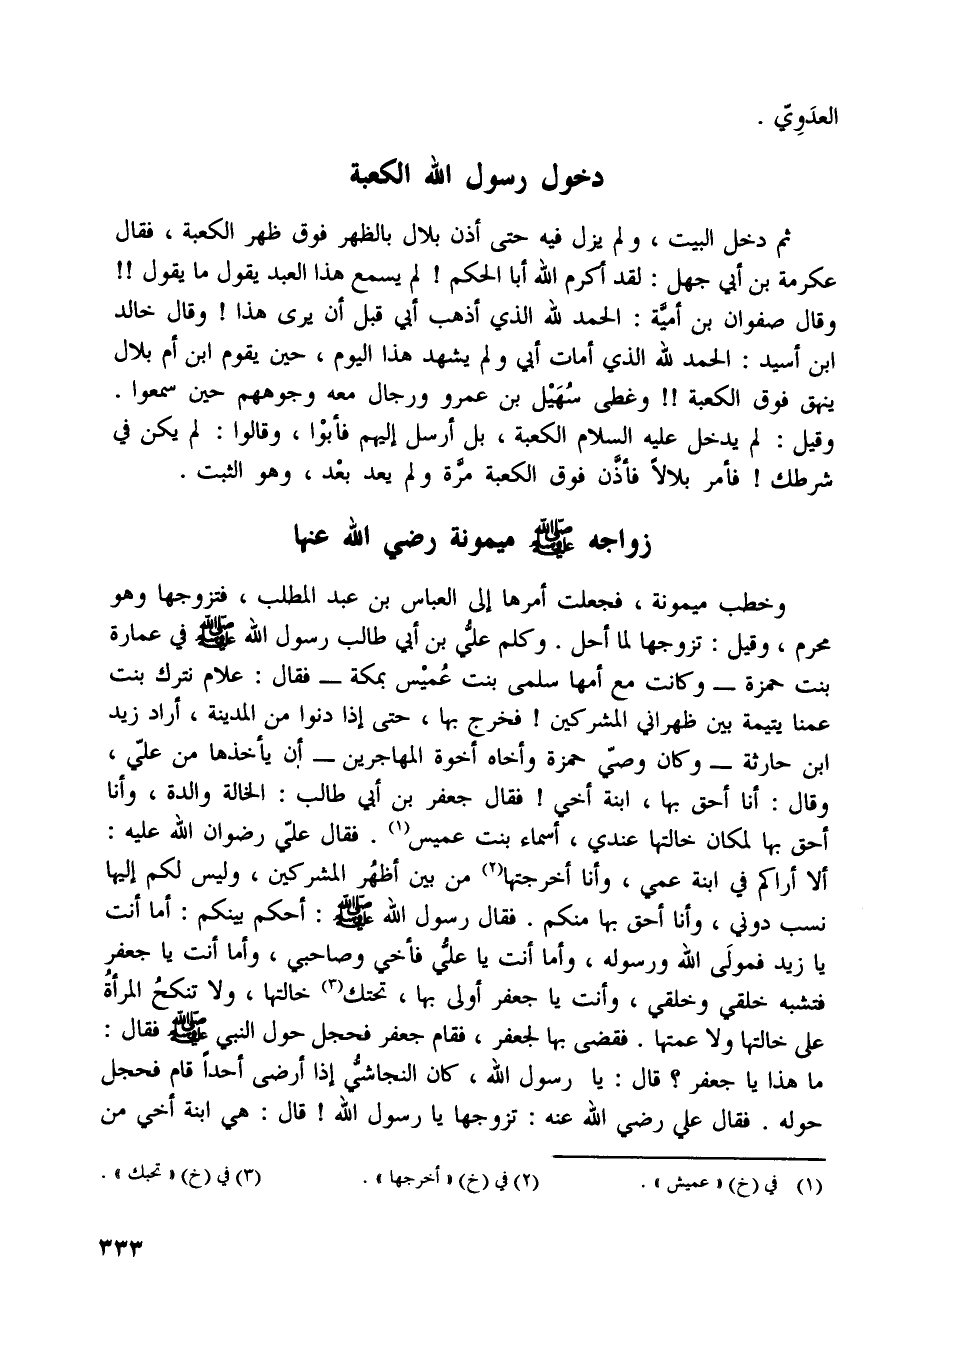 العدَوِيّ .
دخول رسول الله الكعبة
ثم دخل البيت ، ولم يزل فيه حتى أذن بلال بالظهر فوق ظهر الكعبة ، فقال
عكرمة بن أبي جهل : لقد أكرم الله أبا الحكم ! لم يسمع هذا العبد يقول ما يقول !!
وقال صفوان بن أميَّة : الحمد لله الذي أذهب أبي قبل أن يرى هذا ! وقال خالد
ابن أسيد : الحمد لله الذي أمات أبي ولم يشهد هذا اليوم ، حين يقوم ابن أم بلال
ينهق فوق الكعبة !! وغطى سُهَيْل بن عمرو ورجال معه وجوههم حين سمعوا .
وقيل : لم يدخل عليه السلام الكعبة ، بل أرسل إليهم فأبوْا ، وقالوا : لم يكن في
شرطك ! فأمر بلالاً فأذَّن فوق الكعبة مرَّة ولم يعد بعْد ، وهو الثبت .
زواجه ﷺ ميمونة رضي الله عنها
وخطب ميمونة ، فجعلت أمرها إلى العباس بن عبد المطلب ، فتزوجها وهو
محرم ، وقيل : تزوجها لما أحل . وكلم عليُّ بن أبي طالب رسول الله ﷺ في عمارة
بنت حمزة ــ وكانت مع أمها سلمى بنت عُميْس بمكة ــ فقال : علام نترك بنت
عمنا يتيمة بين ظهراني المشركين ! فخرج بها ، حتى إذا دنوا من المدينة ، أراد زيد
ابن حارثة ــ وكان وصيّ حمزة وأخاه أخوة المهاجرين ــ أن يأخذها من عليّ ،
وقال : أنا أحق بها ، ابنة أخي ! فقال جعفر بن أبي طالب : الخالة والدة ، وأنا
أحق بها لمكان خالتها عندي ، أسماء بنت عميس(١) . فقال عليّ رضوان الله عليه :
ألا أراكم في ابنة عمي ، وأنا أخرجتها(٢) من بين أظهُر المشركين ، وليس لكم إليها
نسب دوني ، وأنا أحق بها منكم . فقال رسول الله ﷺ : أحكم بينكم : أما أنت
يا زيد فمولَى الله ورسوله ، وأما أنت يا عليُّ فأخي وصاحبي ، وأما أنت يا جعفر
فتشبه خلقي وخلقي ، وأنت يا جعفر أولى بها ، تحتك(٣) خالتها ، ولا تنكحُ المرأةُ
على خالتها ولا عمتها . فقضى بها لجعفر ، فقام جعفر فحجل حول النبي ﷺ فقال :
ما هذا يا جعفر ؟ قال : يا رسول الله ، كان النجاشيُّ إذا أرضى أحداً قام فحجل
حوله . فقال علي رضي الله عنه : تزوجها يا رسول الله ! قال : هي ابنة أخي من
(١) في (خ) « عميش » . (٢) في (خ) « أخرجها » . (٣) في (خ) « تحبك » .
٣٣٣